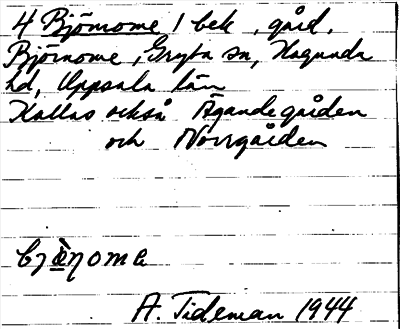 4 Björnome 1 bek, gård.
Björnome, Gryta sn, Hagunda
hd, Uppsala län
Kallas också Ägandegården
och Norrgården
A. Tideman 1944